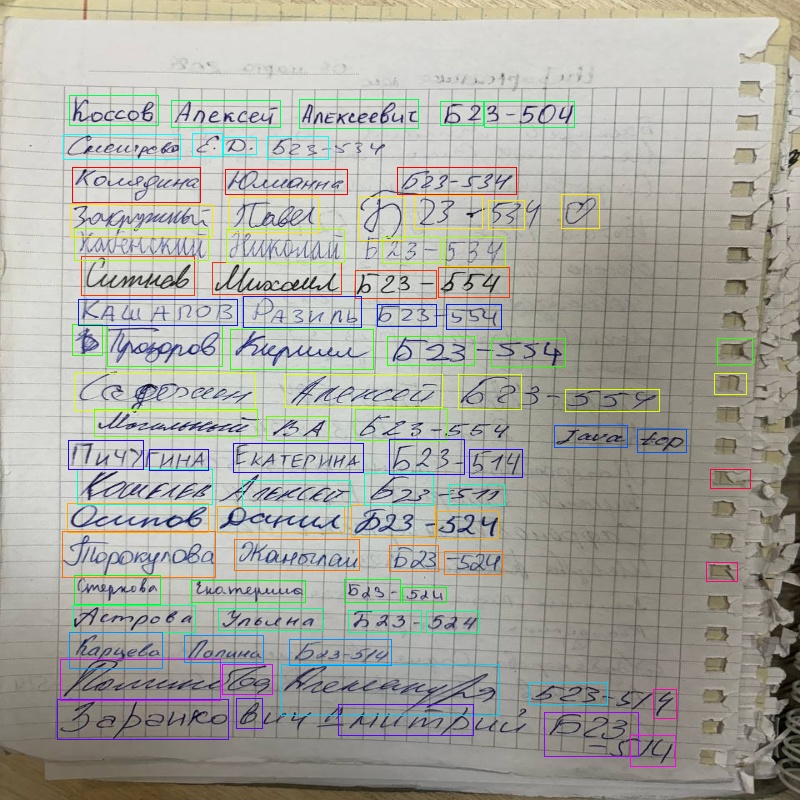 Коссов Алексей Алексеевич Б23-504
Смешрова Е.D. Б23-534
Колядина Юлианна Б23-534
Закружный Павел Б23-534
Хабенский Николай Б23-534
Ситнев Михаил Б23-554
КАШАПОВ РАЗИЛЬ Б23-554
Прозоров Кирилл Б23-554
Алексей Б23-554
Могильный ВА Б23-554 Java top
ПИЧУГИНА ЕКАТЕРИНА Б23-514
Кошелев Алексей Б23-511
Осипов Данил Б23-524
Торокулова Жанылай Б23-524
Стеркова Екатерина Б23-524
Астрова Ульяна Б23-524
Карцева Полина Б23-514
Александра Б23-514
Заранкович Дмитрий Б23
-514